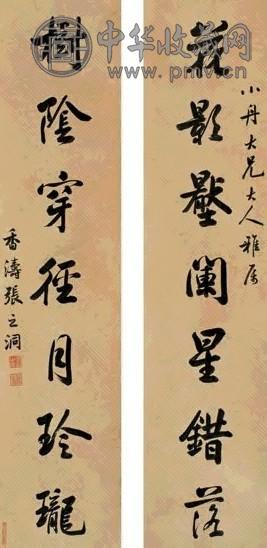 中华收藏网
www.pmv.cn
小丹大兄大人雅属
影壓闌星錯落
陰穿徑月玲瓏
香濤張之洞